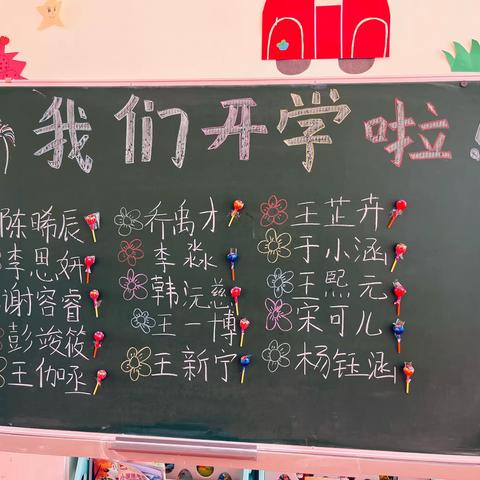 我们开学啦!
陈晞辰 乔禹才 王芷卉
李思妍 李淼 于小涵
谢容睿 韩沅慈 王熙元
彭竣筱 王一博 宋可儿
王伽丞 王新宁 杨钰涵